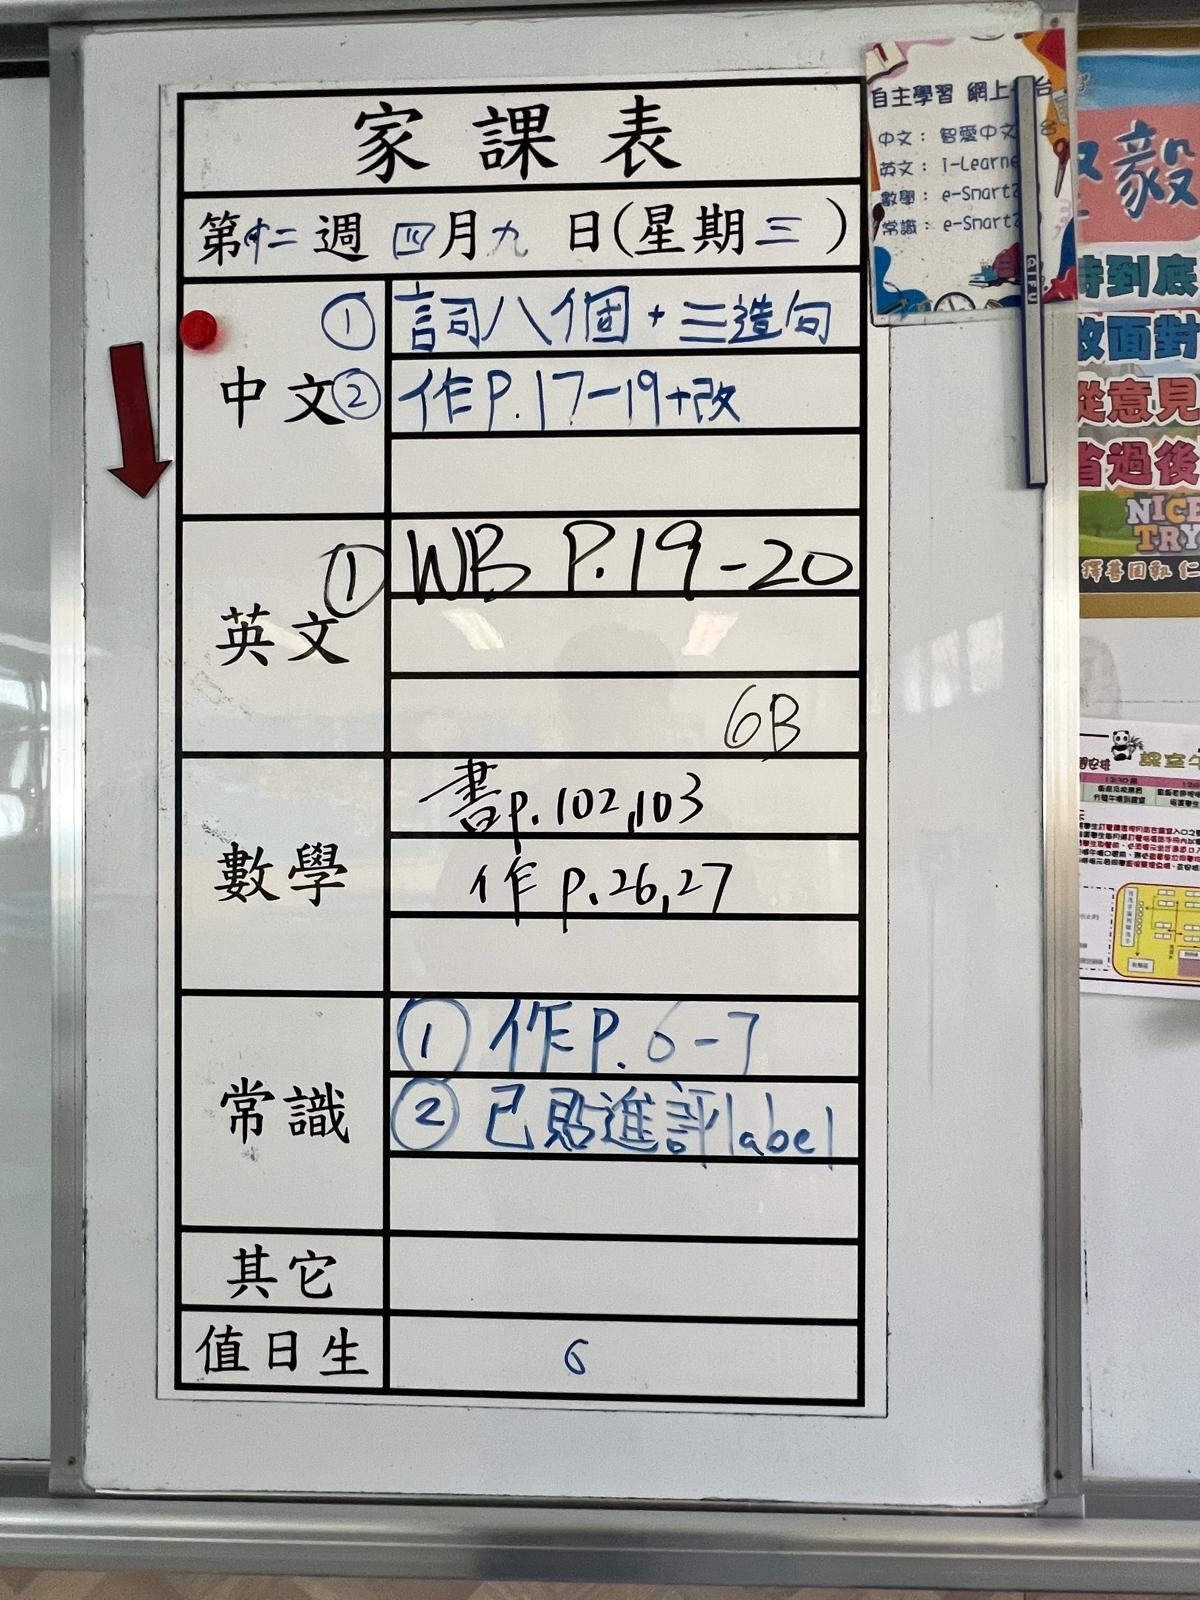 家課表
第十二週 四月九日(星期三)
中文
① 詞八個+三造句
② 作P.17-19+改
英文
① WB P.19-20
6B
數學
書p.102,103
作p.26,27
常識
① 作P.6-7
② 已貼進評label
其它
值日生
6
自主學習 網上 台
中文： 智愛中文 台
英文： i-Learne
數學： e-Smart
常識： e-Smart
毅
持到底
敢面對
從意見
省過後
NICE
TRY
擇善固執 仁
課室
12:30